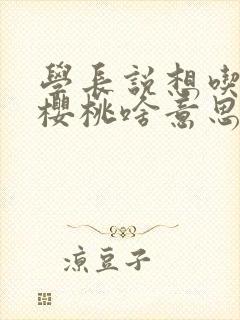 學長說想喫
櫻桃啥意思
涼豆子